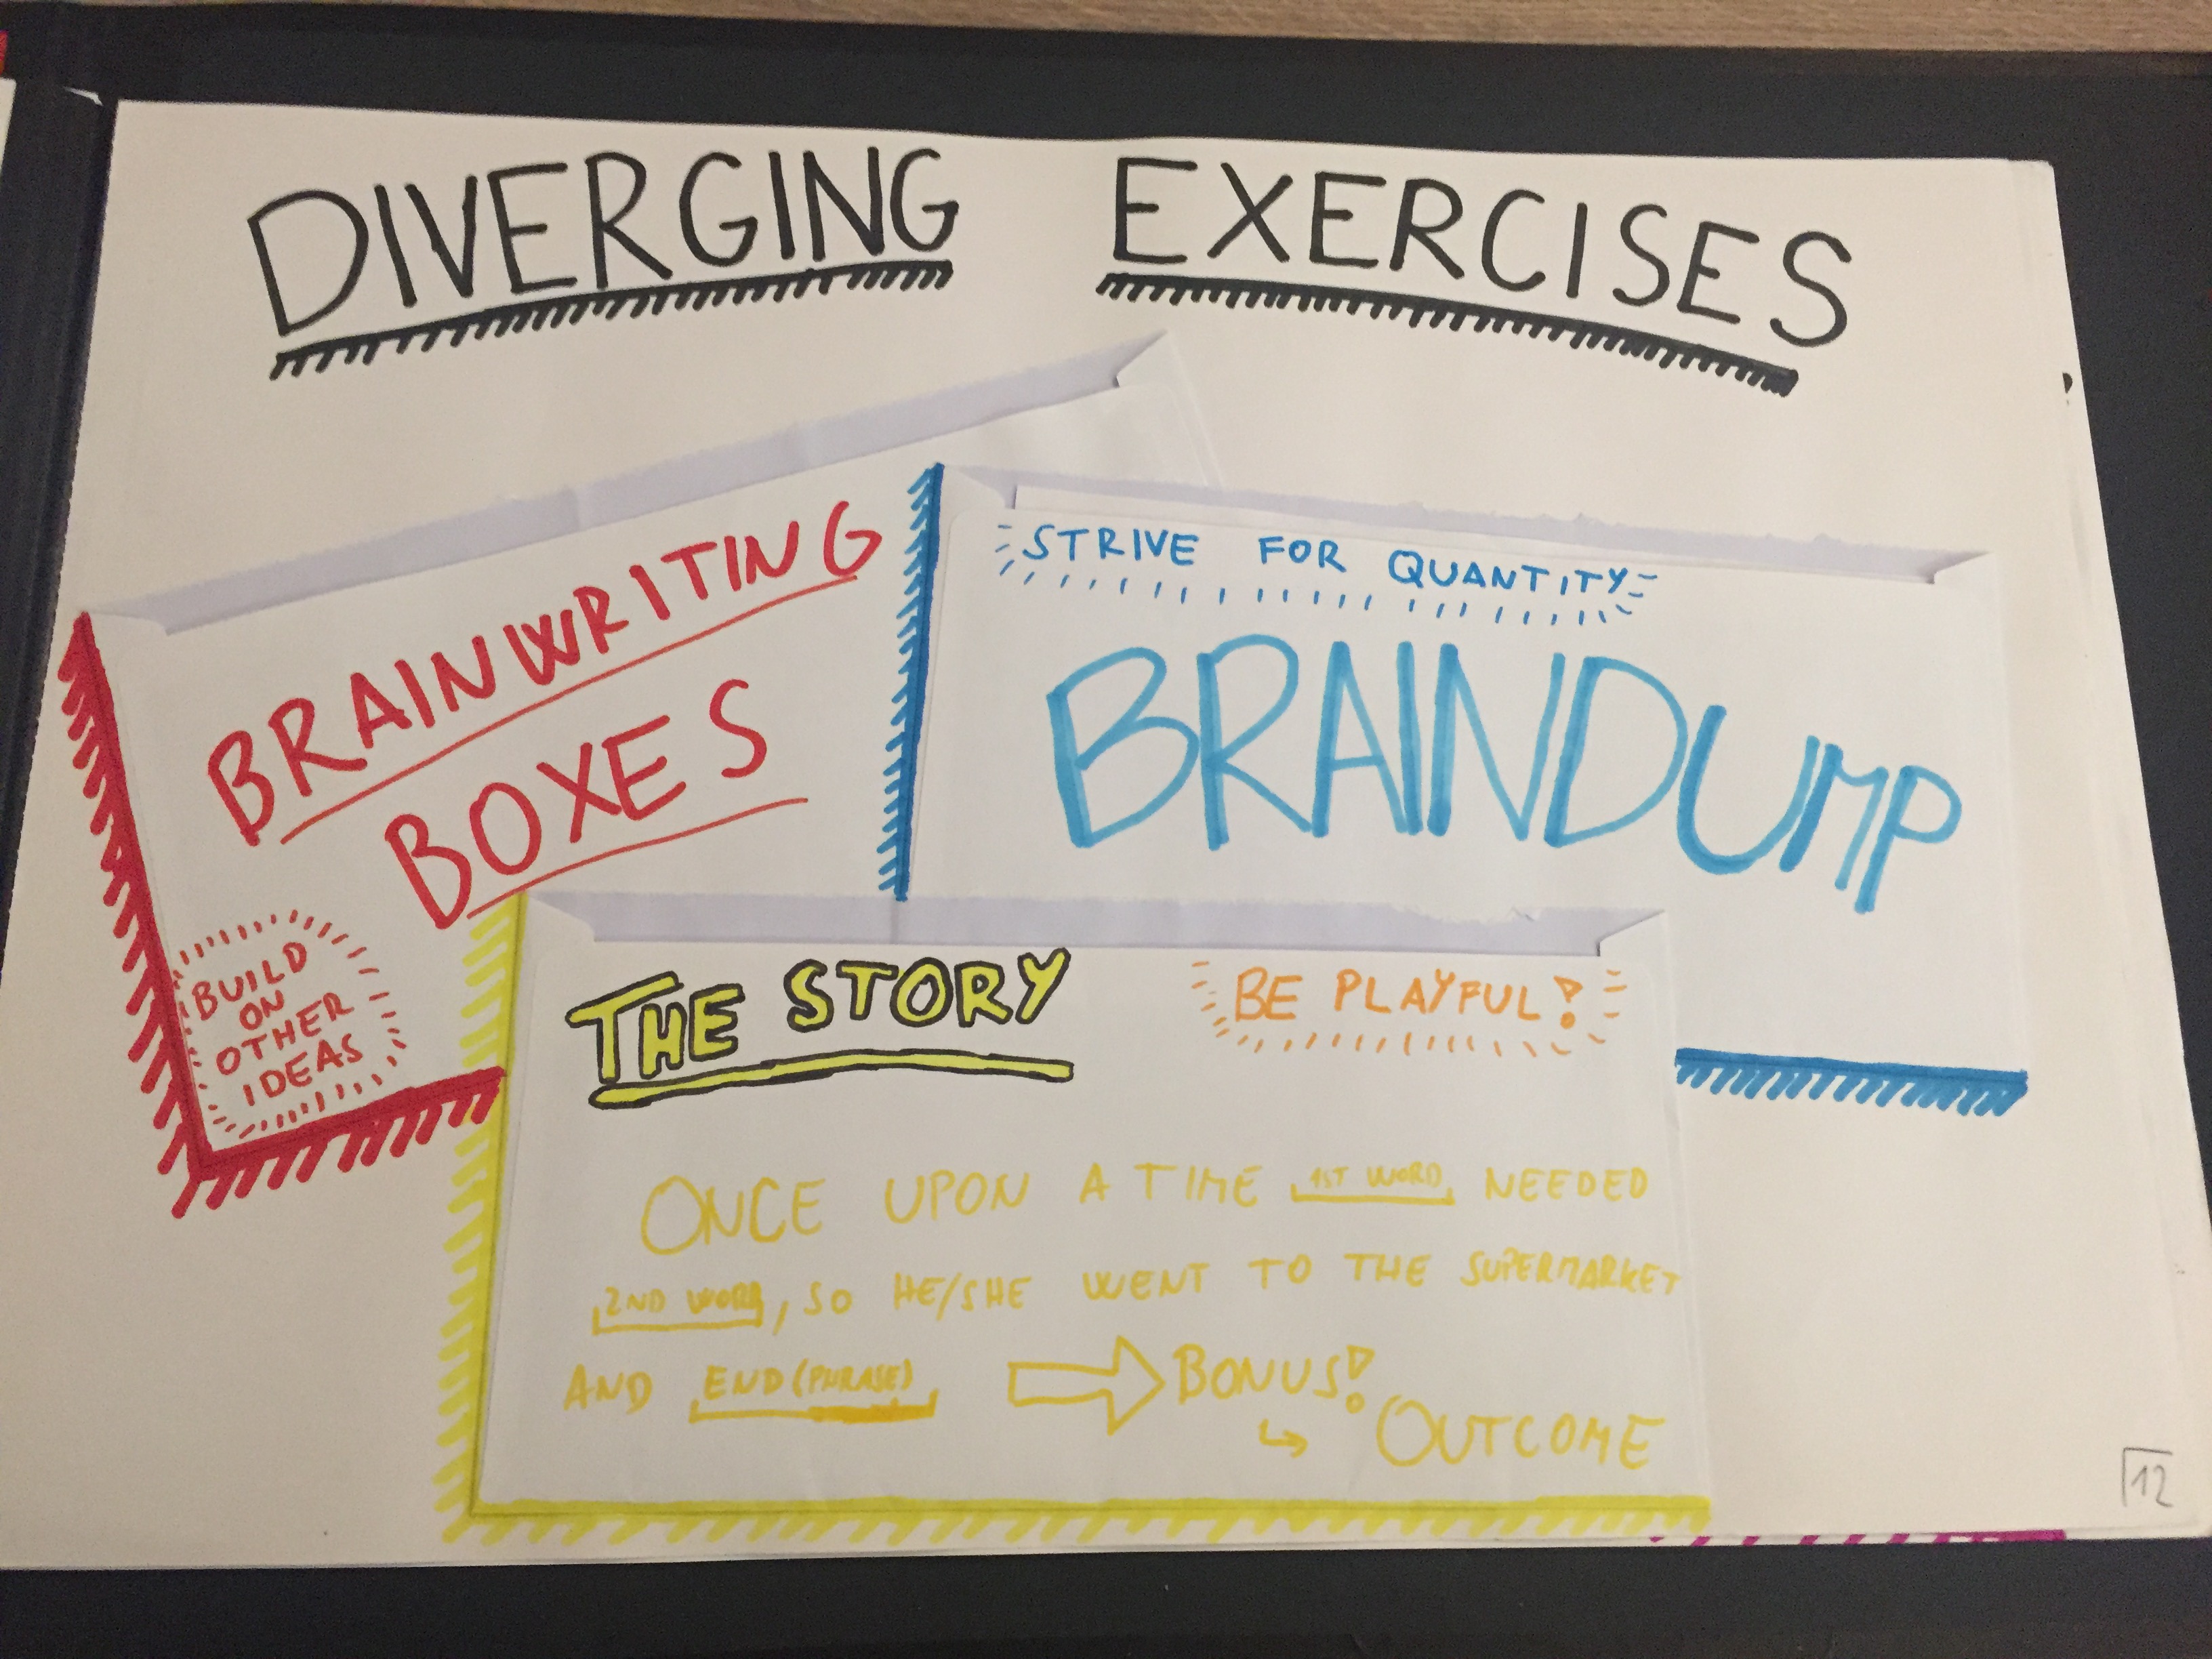 DIVERGING EXERCISES
BRAINWRITING
BOXES
BUILD
ON
OTHER
IDEAS
STRIVE FOR QUANTITY
BRAINDUMP
THE STORY
BE PLAYFUL!
ONCE UPON A TIME 1ST WORD NEEDED
2ND WORD, SO HE/SHE WENT TO THE SUPERMARKET
AND END (PHRASE) → BONUS!
↳ OUTCOME
12